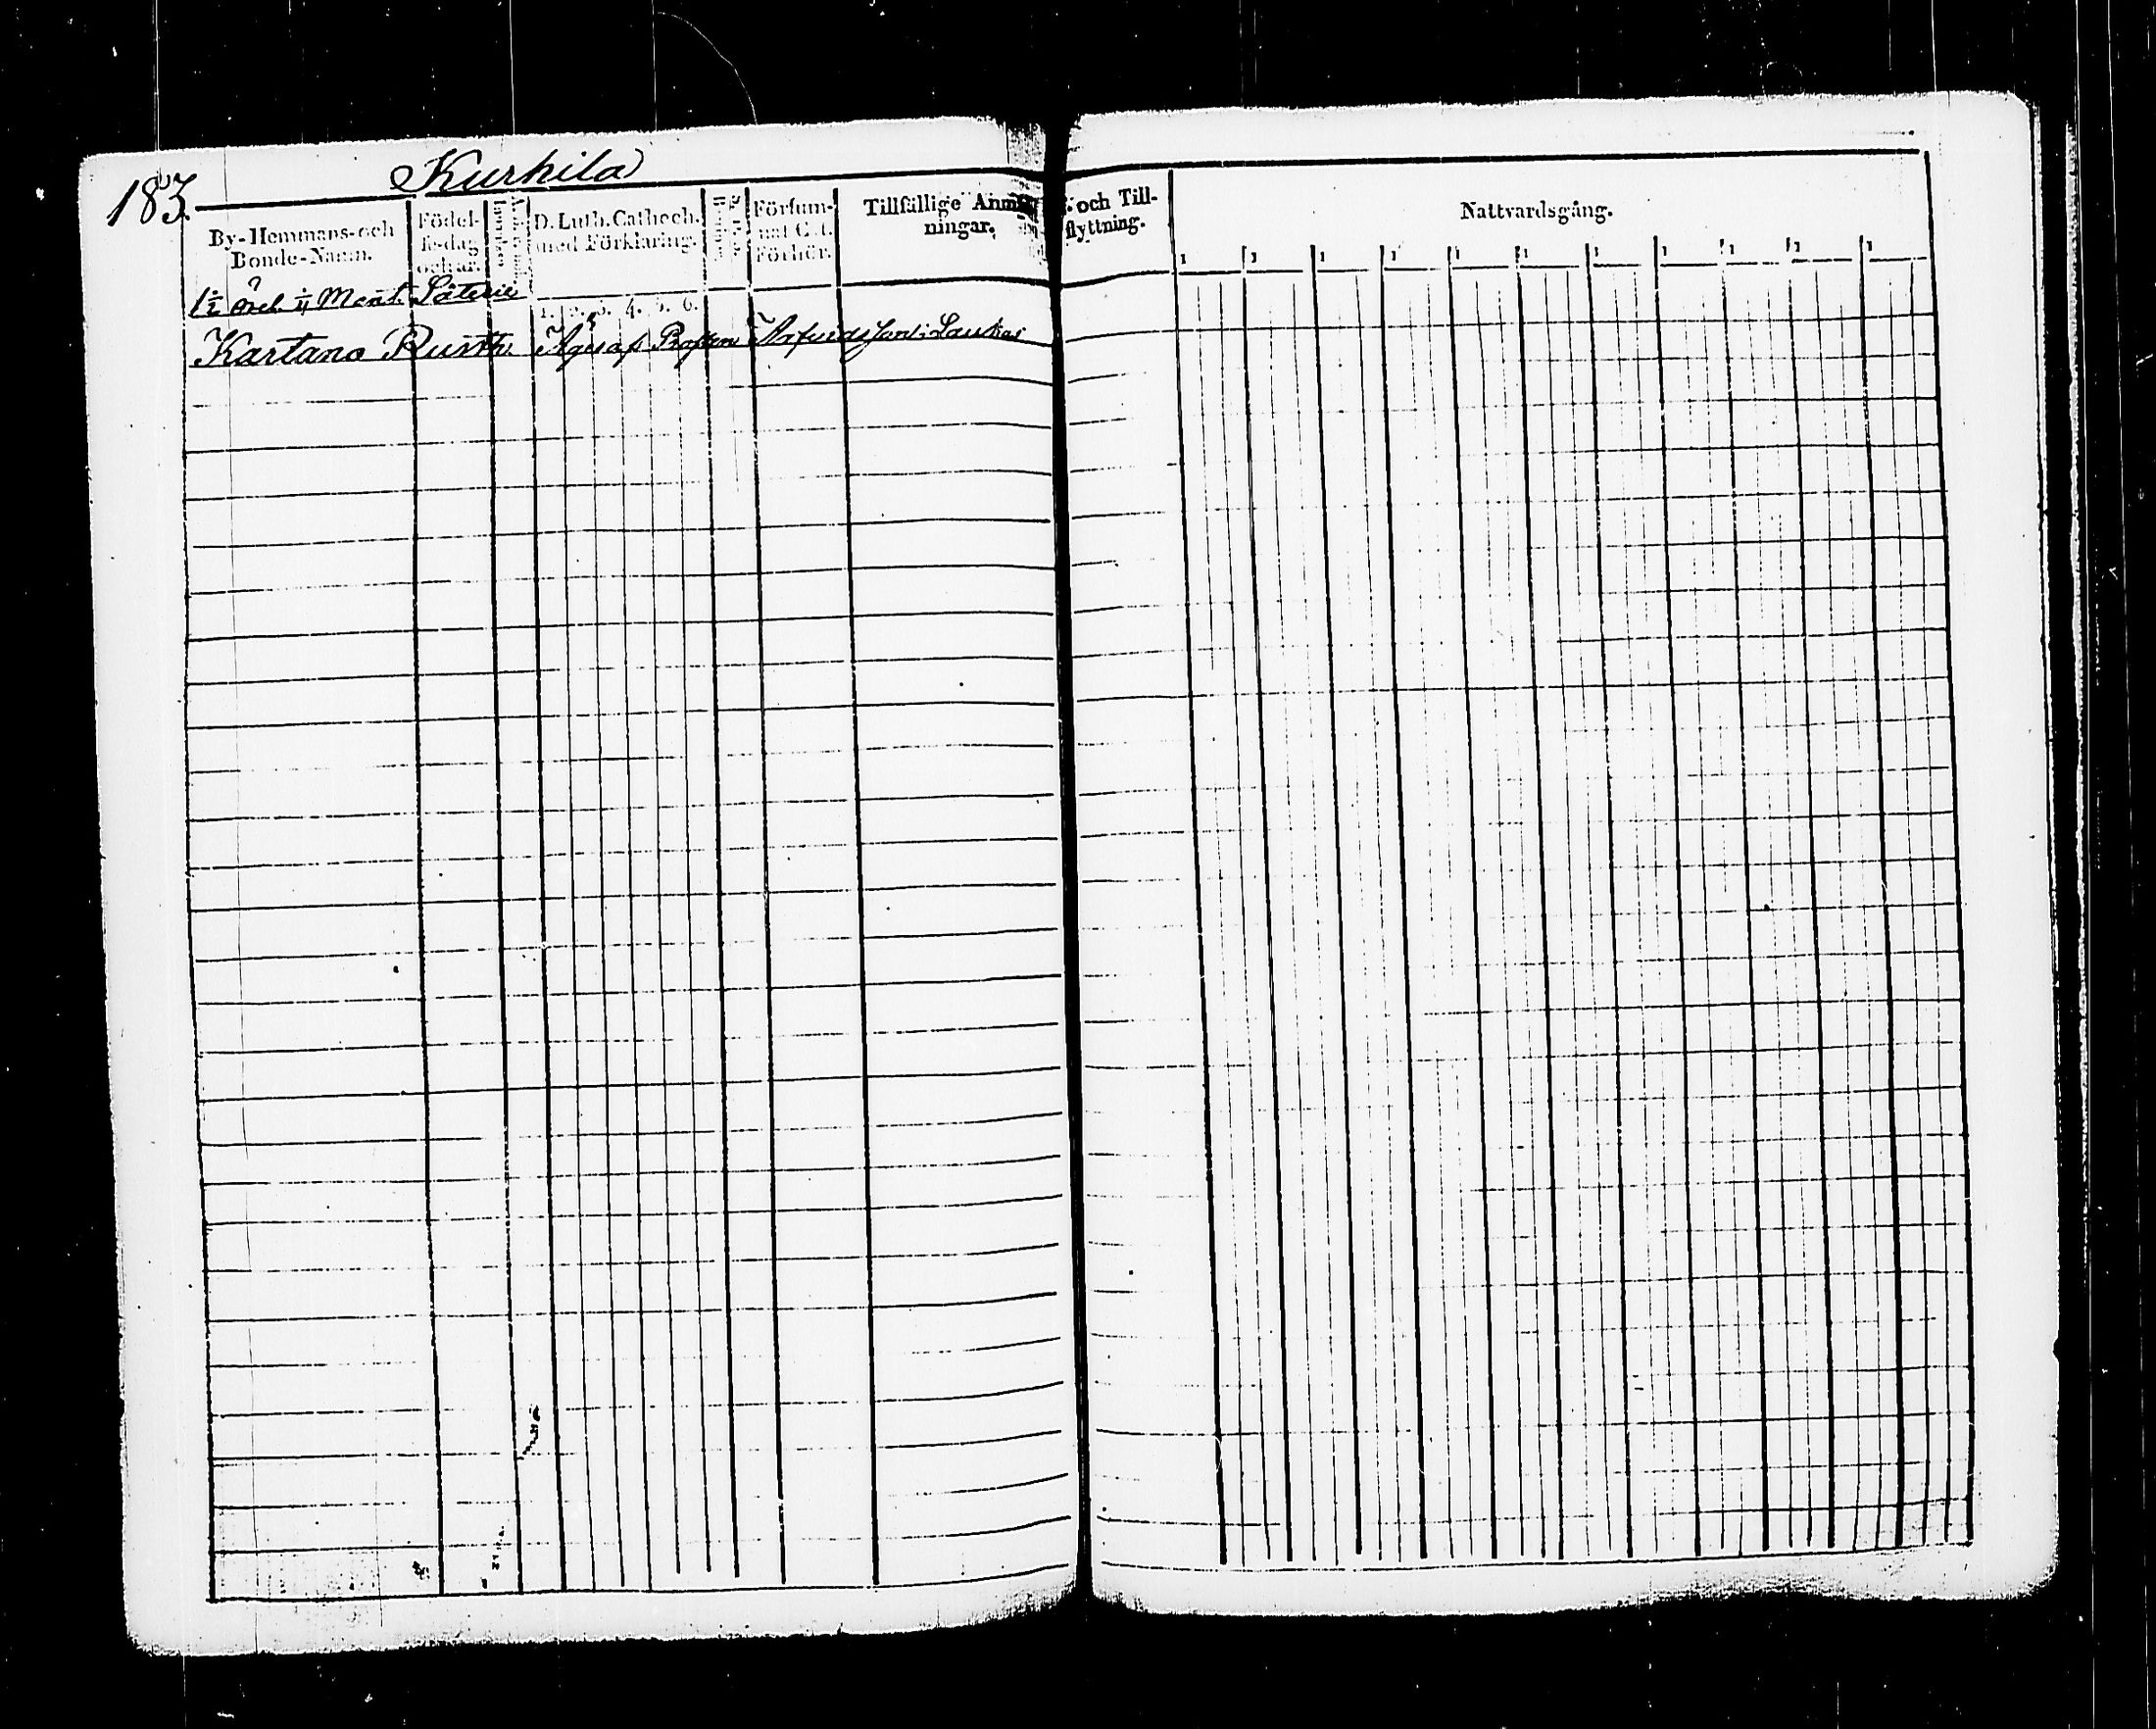 183.
Kurhila
By-Hemmans-och Bonde-Namn.
Födel-
sedag
och år.
D. Luth. Cathech.
med Förklaring.
Försum-
mat Cat.
Förhör.
Tillfällige Anm
ningar.
och Till-
flyttning.
Nattvardsgång.
1 1 1 1 1 1 1 1 1 1 1
1. 2. 3. 4. 5. 6.
1½ Mant. Säterie
Kartano Rusth. Äges af Prosten Laukas